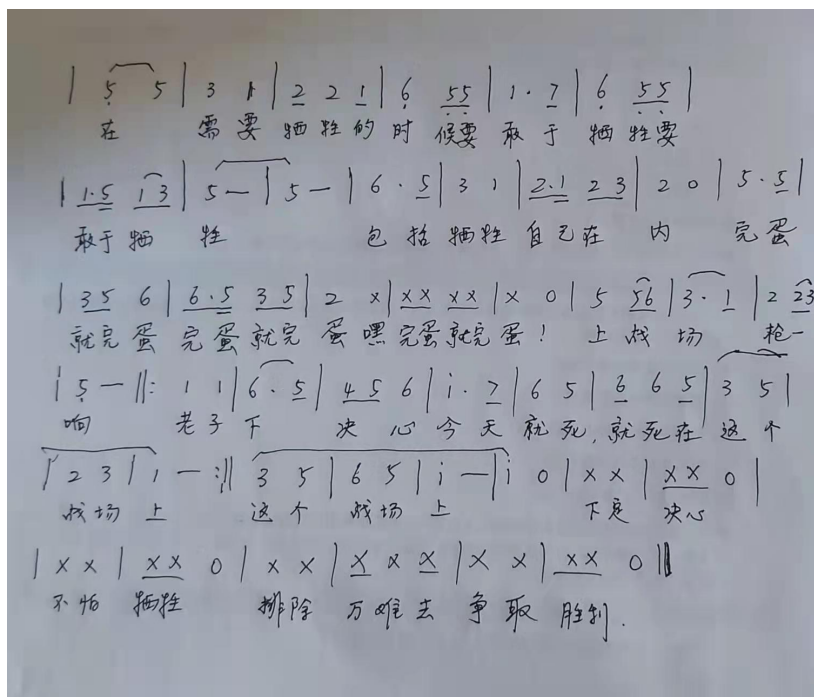 | 5 5 | 3 1 | 2 2 1 | 6 55 | 1· 7 | 6 55 |
在 需要 牺牲的时候要 敢于 牺牲要
| 1·5 13 | 5 — | 5 — | 6 · 5 | 3 1 | 2·1 23 | 2 0 | 5·5 |
敢于牺 牲 包括牺牲自己在 内 完蛋
| 35 6 | 6·5 35 | 2 x | xx xx | x 0 | 5 56 | 3· 1 | 2 23
就完蛋 完蛋就完 蛋嘿完蛋就完蛋! 上战 场 枪一
| 5 — ‖: 1 1 | 6 · 5 | 45 6 | i · 7 | 6 5 | 6 6 5 | 3 5 |
响 老子下 决 心今天就死,就死在这个
| 2 3 | 1 — :‖ 3 5 | 6 5 | i — | i 0 | x x | xx 0 |
战场上 这个 战场 上 下定 决心
| x x | xx 0 | x x | x x x | x x | xx 0 ‖
不怕 牺牲 排除 万难去 争取 胜利.